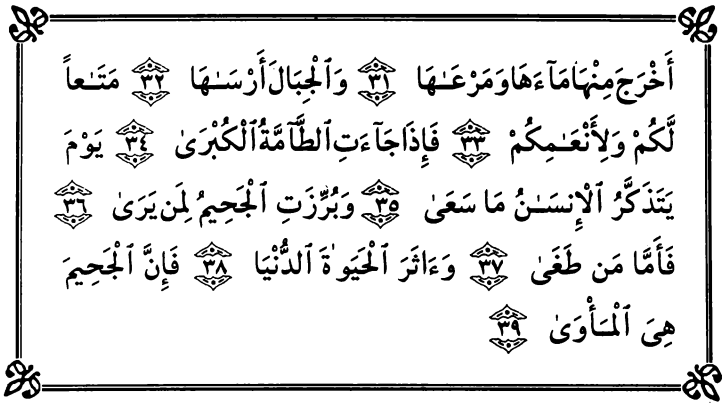 أَخْرَجَ مِنْهَا مَآءَهَا وَمَرْعَـٰهَا ٣١ وَٱلْجِبَالَ أَرْسَـٰهَا ٣٢ مَتَـٰعاً
لَّكُمْ وَلِأَنْعَـٰمِكُمْ ٣٣ فَإِذَا جَآءَتِ ٱلطَّآمَّةُ ٱلْكُبْرَىٰ ٣٤ يَوْمَ
يَتَذَكَّرُ ٱلْإِنسَـٰنُ مَا سَعَىٰ ٣٥ وَبُرِّزَتِ ٱلْجَحِيمُ لِمَن يَرَىٰ ٣٦
فَأَمَّا مَن طَغَىٰ ٣٧ وَءَاثَرَ ٱلْحَيَوٰةَ ٱلدُّنْيَا ٣٨ فَإِنَّ ٱلْجَحِيمَ
هِىَ ٱلْمَأْوَىٰ ٣٩